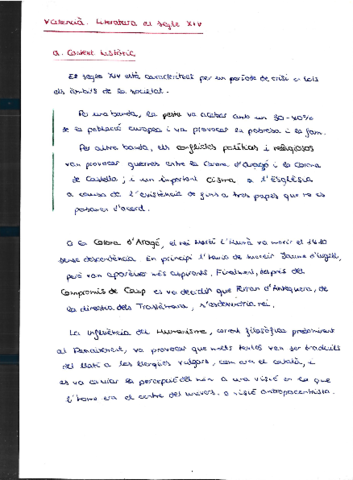 Valencià. Literatura el segle XIV
a. Context històric
El segle XIV està caracteritzat per un període de crisi a tots
els àmbits de la societat.
Per una banda, la pesta va acabar amb un 30-40%
de la població europea i va provocar la pobresa i la fam.
Per altra banda, els conflictes polítics i religiosos
van provocar guerres entre la Corona d'Aragó i la Corona
de Castella; i un important Cisma a l'Església
a causa de l'existència de fins a tres papes que no es
posaven d'acord.
A la Corona d'Aragó, el rei Martí l'Humà va morir el 1410
sense descendència. En principi l'havia de succeir Jaume d'Urgell,
però van aparèixer més aspirants. Finalment, després del
Compromís de Casp es va decidir que Ferran d'Antequera, de
la dinastia dels Trastàmara, s'endevindria rei.
La influència del Humanisme, corrent filosòfica predominant
al Renaixement, va provocar que molts textos van ser traduïts
del llatí a les llengües vulgars, com era el català, i
es va canviar la percepció del món a una visió en la que
l'home era el centre del univers. o visió antropocentrista.